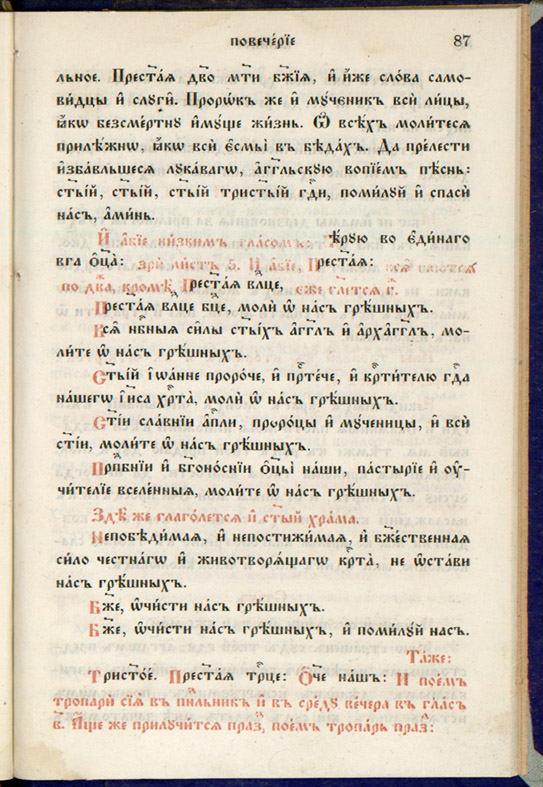 повече́рїе 87
льное. Прест҃а́ѧ дв҃о мт҃и бж҃їѧ, и҆ и҆́же сло́ва само-
ви́дцы и҆ слꙋги̑. Проро́къ же и҆ мч҃еникъ всѝ ли́цы,
ꙗ҆́кѡ безсме́ртнꙋ и҆мꙋ́ще жи́знь. Ѡ҆ всѣ́хъ моли́тесѧ
прилѣ́жнѡ, ꙗ҆́кѡ всѝ є҆смы̀ въ бѣда́хъ. Да пре́лести
и҆зба́вльшесѧ лꙋка́вагѡ, а҆́гг҃льскꙋю вопїе́мъ пѣ́снь:
ст҃ы́й, ст҃ы́й, ст҃ы́й трист҃ы́й гд҃и, поми́лꙋй и҆ спасѝ
на́съ, а҆ми́нь.
И҆ а҆́бїе ни́зкимъ гла́сомъ: Вѣ́рꙋю во є҆ди́наго
бг҃а ѻ҆ц҃а̀: зрѝ ли́стъ 5. И҆ а҆́бїе, Прест҃а́ѧ:
по два̀, кромѣ̀, Прест҃а́ѧ влⷣце,
Прест҃а́ѧ влⷣце бц҃е, молѝ ѡ҆ на́съ грѣ́шныхъ.
Всѧ̑ нбⷭ҇ныѧ си̑лы ст҃ы́хъ а҆́гг҃лъ и҆ а҆рха́гг҃лъ, мо-
ли́те ѡ҆ на́съ грѣ́шныхъ.
Ст҃ы́й і҆ѡа́нне проро́че, и҆ прⷣте́че, и҆ крⷭ҇ти́телю гдⷭ҇а
на́шегѡ і҆и҃са хрⷭ҇та̀, молѝ ѡ҆ на́съ грѣ́шныхъ.
Ст҃і́и сла́внїи а҆пⷭ҇ли, проро́цы и҆ мꙋ́ченицы, и҆ всѝ
ст҃і́и, моли́те ѡ҆ на́съ грѣ́шныхъ.
Прпⷣбнїи и҆ бг҃оно́снїи ѻ҆ц҃ы̀ на́ши, па́стырїе и҆ ᲂу҆-
чи́телїе вселе́нныѧ, моли́те ѡ҆ на́съ грѣ́шныхъ.
Здѣ́ же глаго́летсѧ и҆ ст҃ы́й хра́ма.
Непобѣди́маѧ, и҆ непостижи́маѧ, и҆ бжⷭ҇е́ственнаѧ
си́ло честна́гѡ и҆ животворѧ́щагѡ крⷭ҇та̀, не ѡ҆ста́ви
на́съ грѣ́шныхъ.
Бж҃е, ѡ҆чи́сти на́съ грѣ́шныхъ.
Бж҃е, ѡ҆чи́сти на́съ грѣ́шныхъ, и҆ поми́лꙋй насъ.
Та́же:
Трист҃о́е. Прест҃а́ѧ трⷪ҇це: Ѻ҆́ч҃е на́шъ: И҆ пое́мъ
тропари̑ сїѧ̑ въ пⷩ҇и́льникъ и҆ въ сре́дꙋ ве́чера въ гла́съ
в҃. А҆́ще же прилꙋчи́тсѧ праз҃, пое́мъ тропа́рь праз҃: